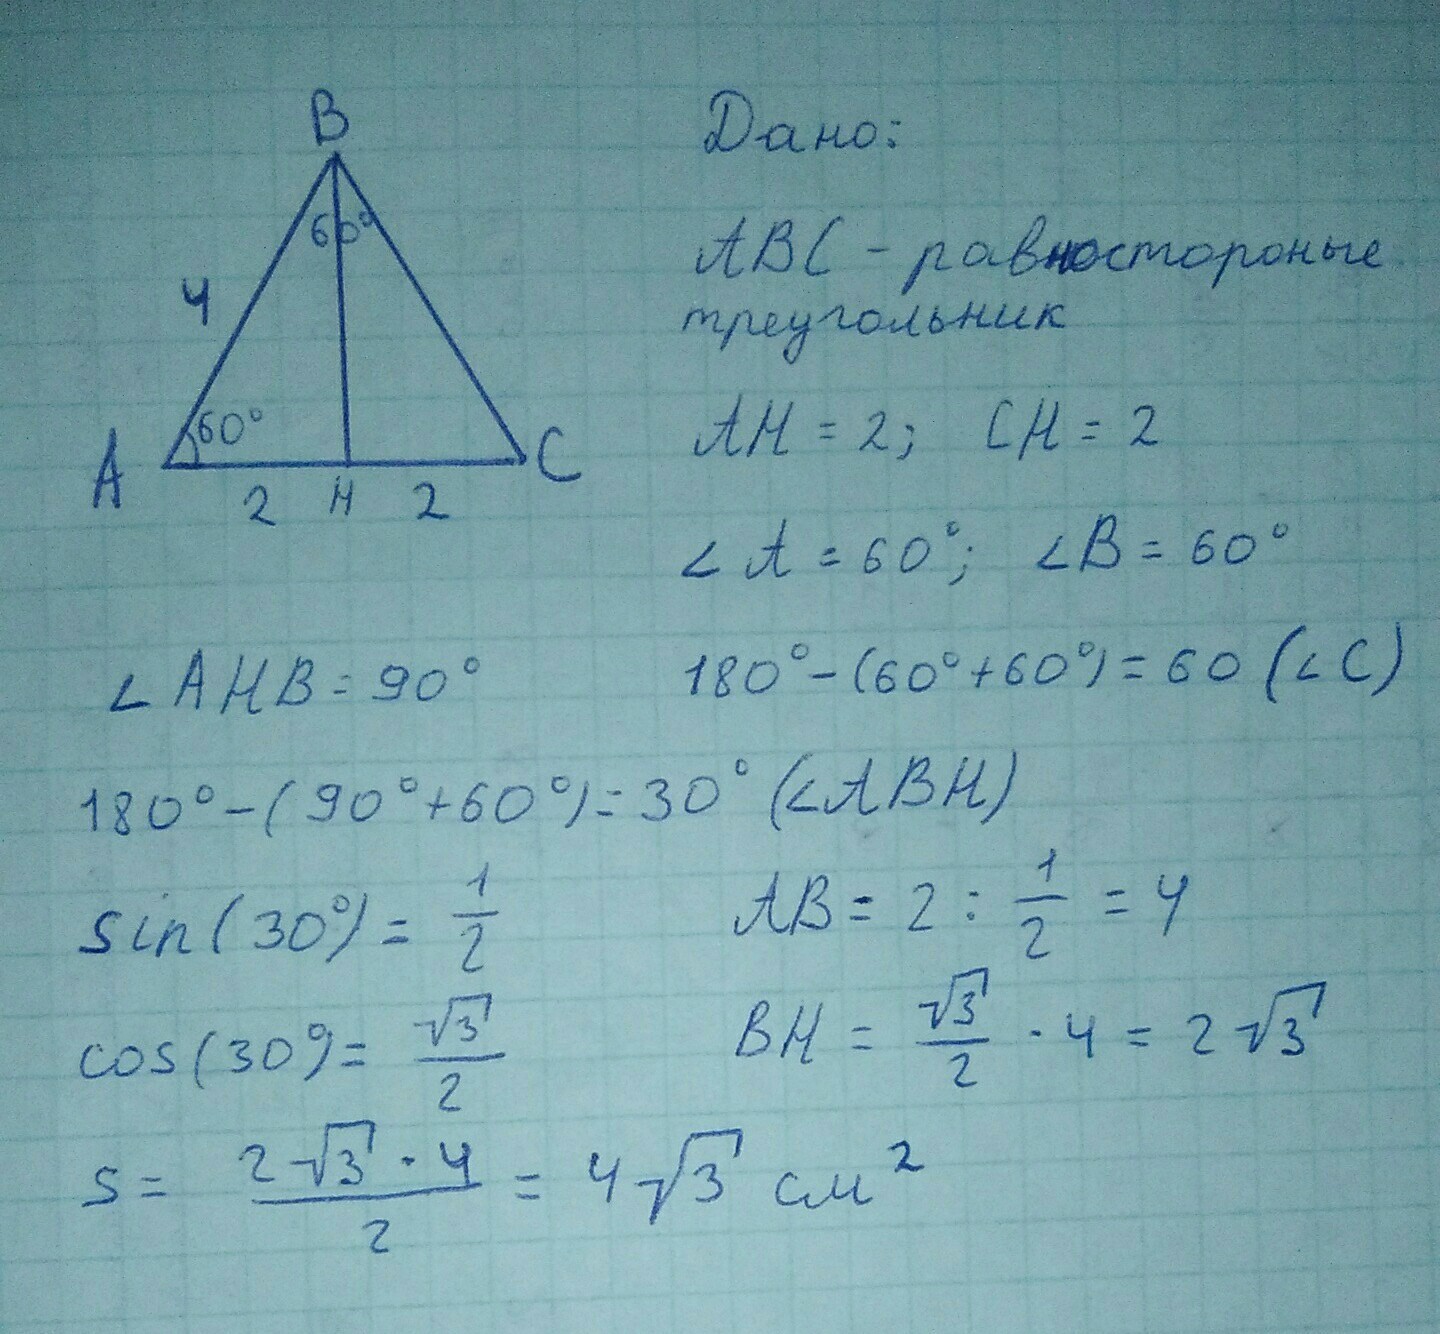 B
60°
4
60°
A
C
2 H 2
Дано:
ABC - равностороные
треугольник
AH = 2; CH = 2
∠A = 60°; ∠B = 60°
∠AHB = 90°
180° - (60° + 60°) = 60 (∠C)
180° - (90° + 60°) = 30° (∠ABH)
sin(30°) = 1/2
AB = 2 : 1/2 = 4
cos(30°) = √3/2
BH = √3/2 · 4 = 2√3
s = 2√3 · 4/2 = 4√3 см²